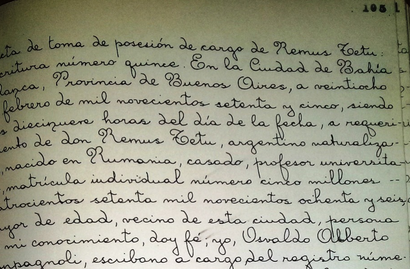 105
eta de toma de posesión de cargo de Remus Tetu.
critura número quince. En la Ciudad de Bahía
lanca, Provincia de Buenos Aires, a veintiocho
febrero de mil novecientos setenta y cinco, siendo
s diecinueve horas del día de la fecha, a requeri-
ento de don Remus Tetu, argentino naturaliza-
, nacido en Rumania, casado, profesor universita-
, matrícula individual número cinco millones --
atrocientos setenta mil novecientos ochenta y seis,
yor de edad, vecino de esta ciudad, persona
mi conocimiento, doy fe, yo, Osvaldo Alberto
mpagnoli, escribano a cargo del registro núme-